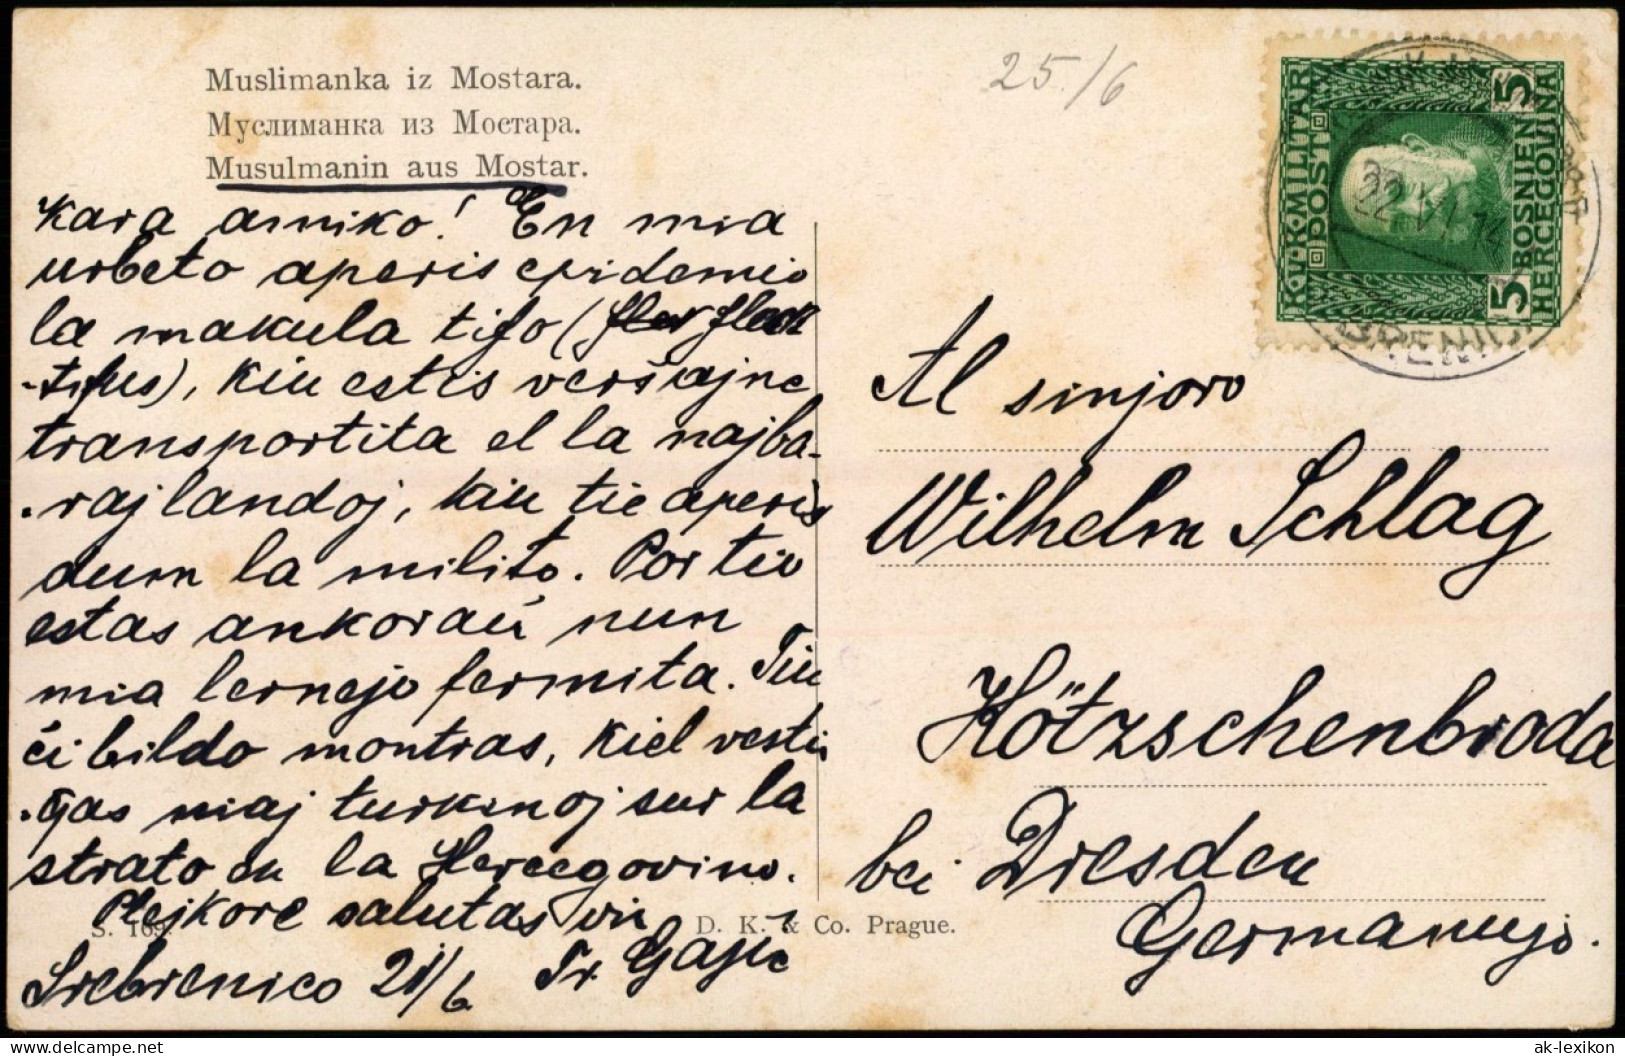 Muslimanka iz Mostara.
Муслиманка из Мостара.
Musulmanin aus Mostar.
25./6
K.u.K. MILITÄR
POST
BOSNIEN
HERCEGOVINA
5
5
22 VI 14
Kara amiko! En mia
urbeto aperis epidemio
la makula tifo (fleck
-tifus), kiu estis verŝajne
transportita el la najba-
-raj landoj, kiu tie aperis
dum la milito. Por tio
estas ankoraŭ nun
mia lernejo fermita. Tiu
ĉi bildo montras, kiel vesti-
-ĝas niaj turkinoj sur la
strato en la Hercegovino.
Plejkore salutas vin
Srebrenico 21/6 Tr. Gajić
S. 169.
D. K. & Co. Prague.
Al sinjoro
Wilhelm Schlag
Kötzschenbroda
bei Dresden
Germanujo.
ak-lexikon
delcampe.net